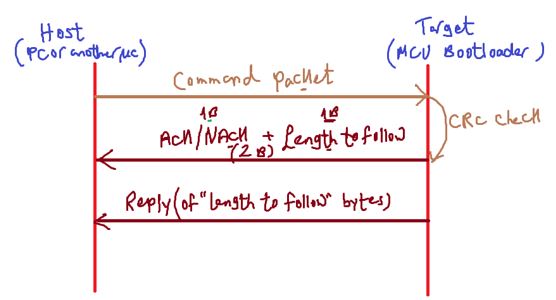 Host
(PC or another µc)
Target
(MCU Bootloader)
Command packet
1B
1B
Ack/NACK + Length to follow
(2B)
CRC check
Reply(of "length to follow" bytes)